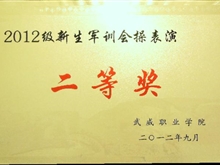 2012级新生军训会操表演
二等奖
武威职业学院
二〇一二年九月